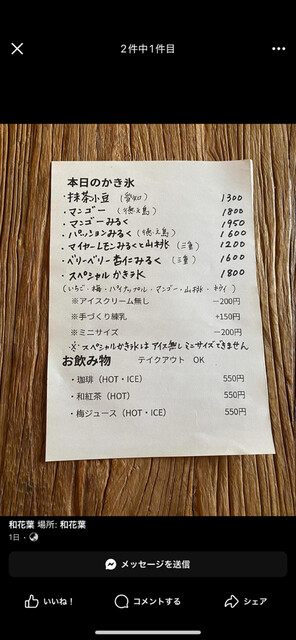 2件中1件目
本日のかき氷
・抹茶小豆（愛知） 1300
・マンゴー（徳之島） 1800
・マンゴーみるく 1950
・パッションみるく（徳之島） 1600
・マイヤーレモンみるくと山桃（三重） 1200
・ベリーベリー杏仁みるく（三重） 1600
・スペシャルかき氷 1800
（いちご・梅・パイナップル・マンゴー・山桃・
※アイスクリーム無し −200円
※手づくり練乳 +150円
※ミニサイズ −200円
※スペシャルかき氷はアイス無しミニサイズできません
お飲み物 テイクアウト OK
・珈琲（HOT・ICE） 550円
・和紅茶（HOT） 550円
・梅ジュース（HOT・ICE） 550円
和花葉 場所: 和花葉
1日・
メッセージを送信
いいね！ コメントする シェア